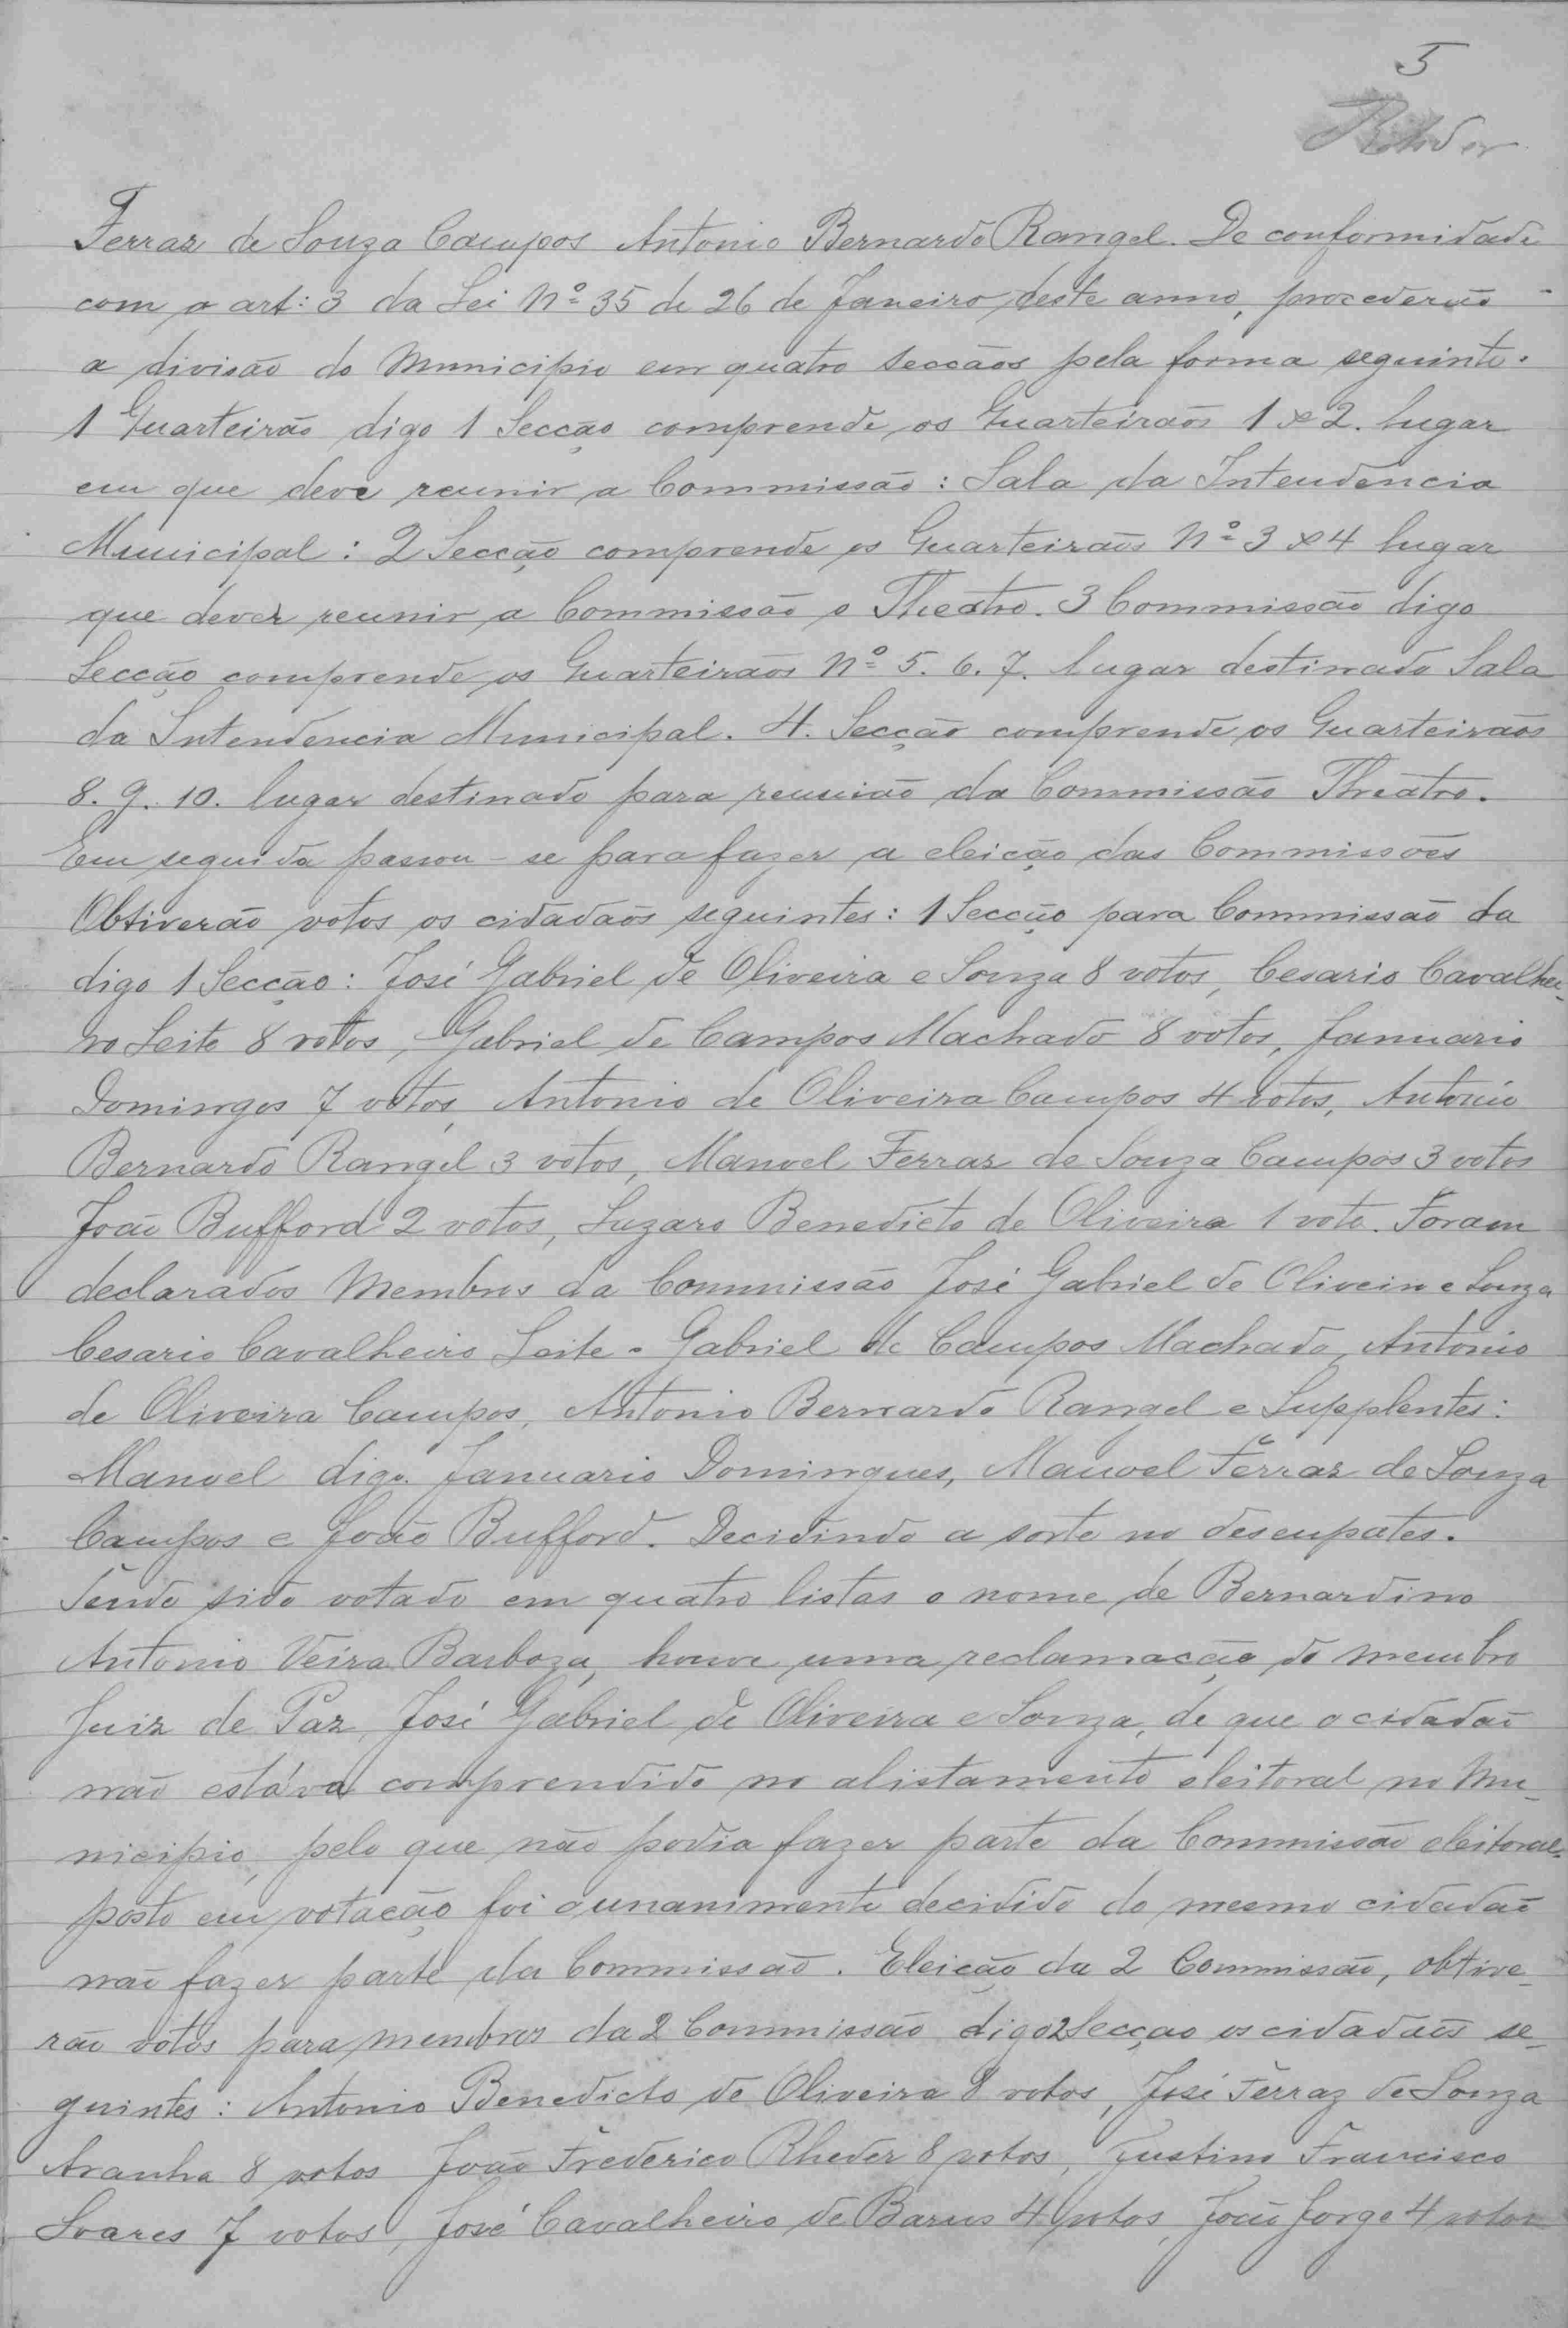 5
Ferraz de Souza Campos Antonio Bernardo Rangel. De conformidade
com o art: 3 da Lei Nº 35 de 26 de Janeiro deste anno, procederão
a divisão do Municipio em quatro secçãos pela forma seguinte.
1 Quarteirão digo 1 Secção comprende os Quarteirãos 1 e 2. lugar
em que deve reunir a Commissão: Sala da Intendencia
Municipal: 2 Secção comprende os Quarteirãos Nº 3 e 4 lugar
que dever reunir a Commissão o Theatro. 3 Commissão digo
Secção comprende os Quarteirãos Nº 5. 6. 7. lugar destinado Sala
da Intendencia Municipal. 4. Secção comprende os Quarteirãos
8. 9. 10. lugar destinado para reunião da Commissão Theatro.
Em seguida passou-se para fazer a eleição das Commissões
Obtiverão votos os cidadãos seguintes: 1 Secção para Commissão da
digo 1 Secção: José Gabriel de Oliveira e Souza 8 votos, Cesario Cavalhei-
ro Leite 8 votos, Gabriel de Campos Machado 8 votos, Januario
Domingos 7 votos, Antonio de Oliveira Campos 4 votos, Antonio
Bernardo Rangel 3 votos, Manoel Ferraz de Souza Campos 3 votos
João Bufford 2 votos, Lazaro Benedicto de Oliveira 1 voto. Foram
declarados Membros da Commissão José Gabriel de Oliveira e Souza
Cesario Cavalheiro Leite. Gabriel de Campos Machado, Antonio
de Oliveira Campos, Antonio Bernardo Rangel e Supplentes:
Manoel digo. Januario Domingues, Manoel Ferraz de Souza
Campos e João Bufford. Decidindo a sorte no desenpates.
Tendo sido votado em quatro listas o nome de Bernardino
Antonio Veira Barboza, houve uma reclamação do membro
Juiz de Paz, José Gabriel de Oliveira e Souza, de que o cidadão
não estáva comprendido no alistamento eleitoral no Mu-
nicipio, pelo que não podia fazer parte da Commissão eleitoral.
posto em votação foi unanimente decidido do mesmo cidadão
não fazer parte da Commissão. Eleição da 2 Commissão, obtive-
rão votos para membros da 2 Commissão digo 2 Secção os cidadãos se-
guintes: Antonio Benedicto de Oliveira 8 votos, José Ferraz de Souza
Aranha 8 votos João Frederico Rheder 8 votos, Justino Francisco
Soares 7 votos, José Cavalheiro de Barros 4 votos, João Jorge 4 votos